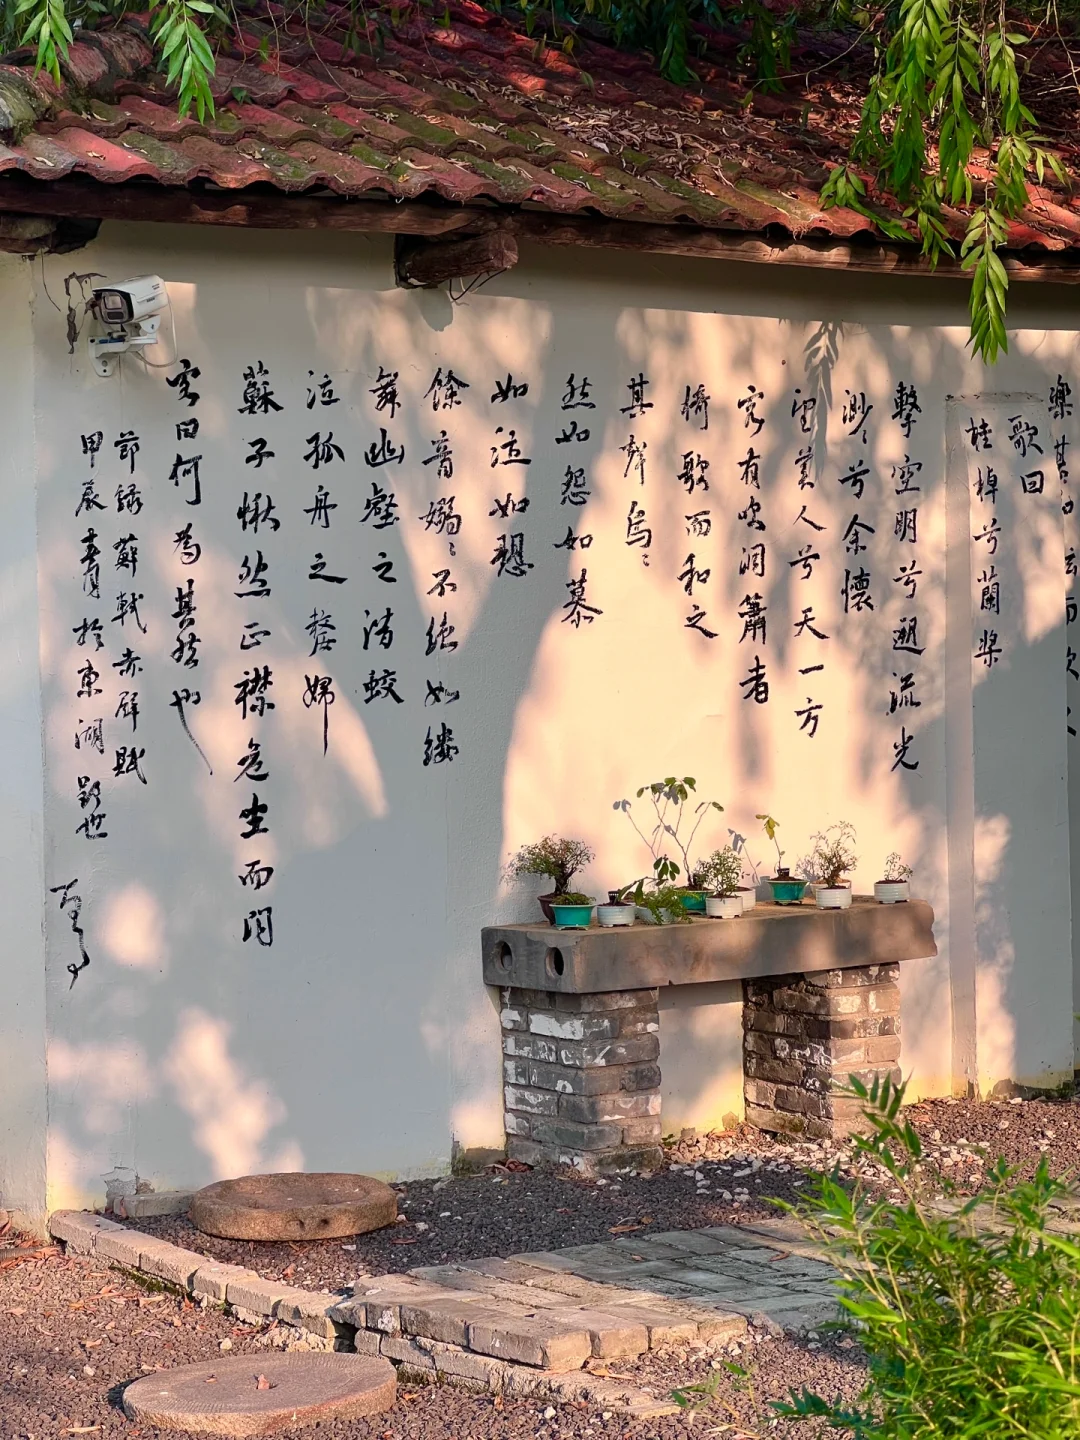 樂甚扣舷而歌之
歌曰
桂棹兮蘭槳
擊空明兮遡流光
渺〻兮余懷
望美人兮天一方
客有吹洞簫者
倚歌而和之
其聲烏〻
然如怨如慕
如泣如愬
餘音嫋〻不絕如縷
舞幽壑之潛蛟
泣孤舟之嫠婦
蘇子愀然正襟危坐而問
客曰何為其然也
節錄蘇軾赤壁賦
甲辰 於東湖